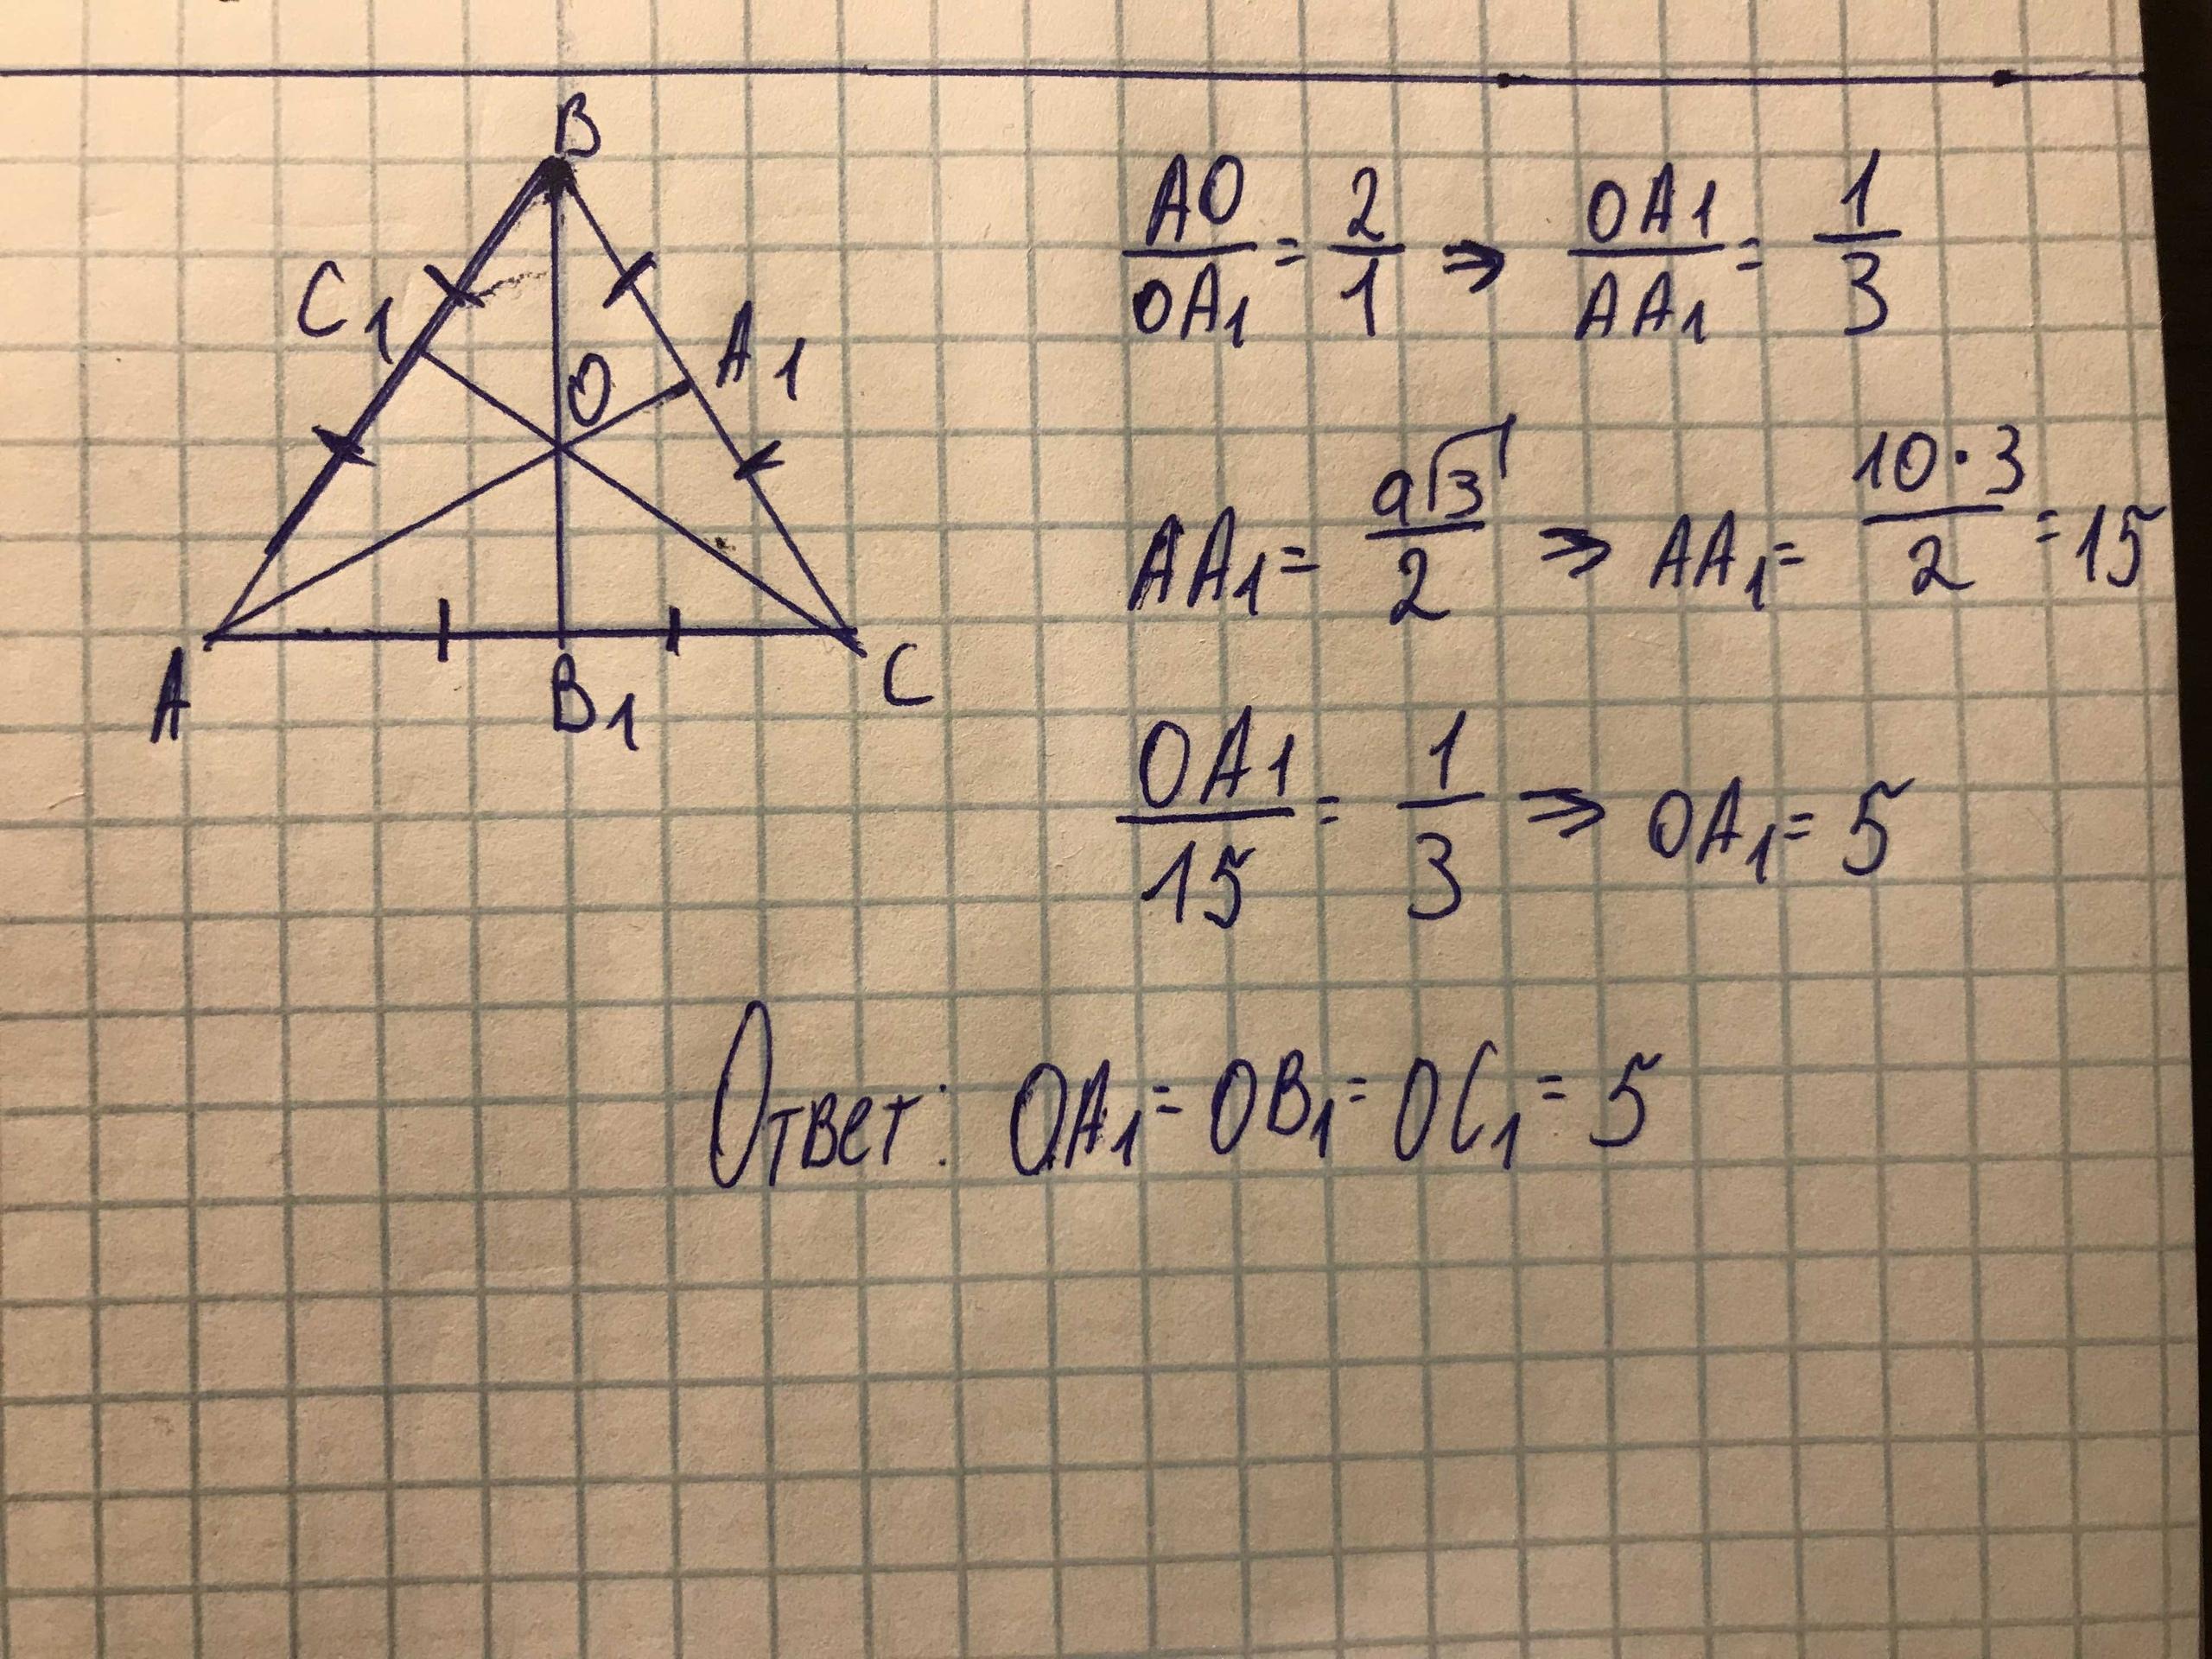 B
C₁
A₁
O
A
B₁
C
AO/OA₁ = 2/1 ⇒ OA1/AA₁ = 1/3
AA₁ = a√3/2 ⇒ AA₁ = 10·3/2 = 15
OA1/15 = 1/3 ⇒ OA₁ = 5
Ответ: OA₁ = OB₁ = OC₁ = 5